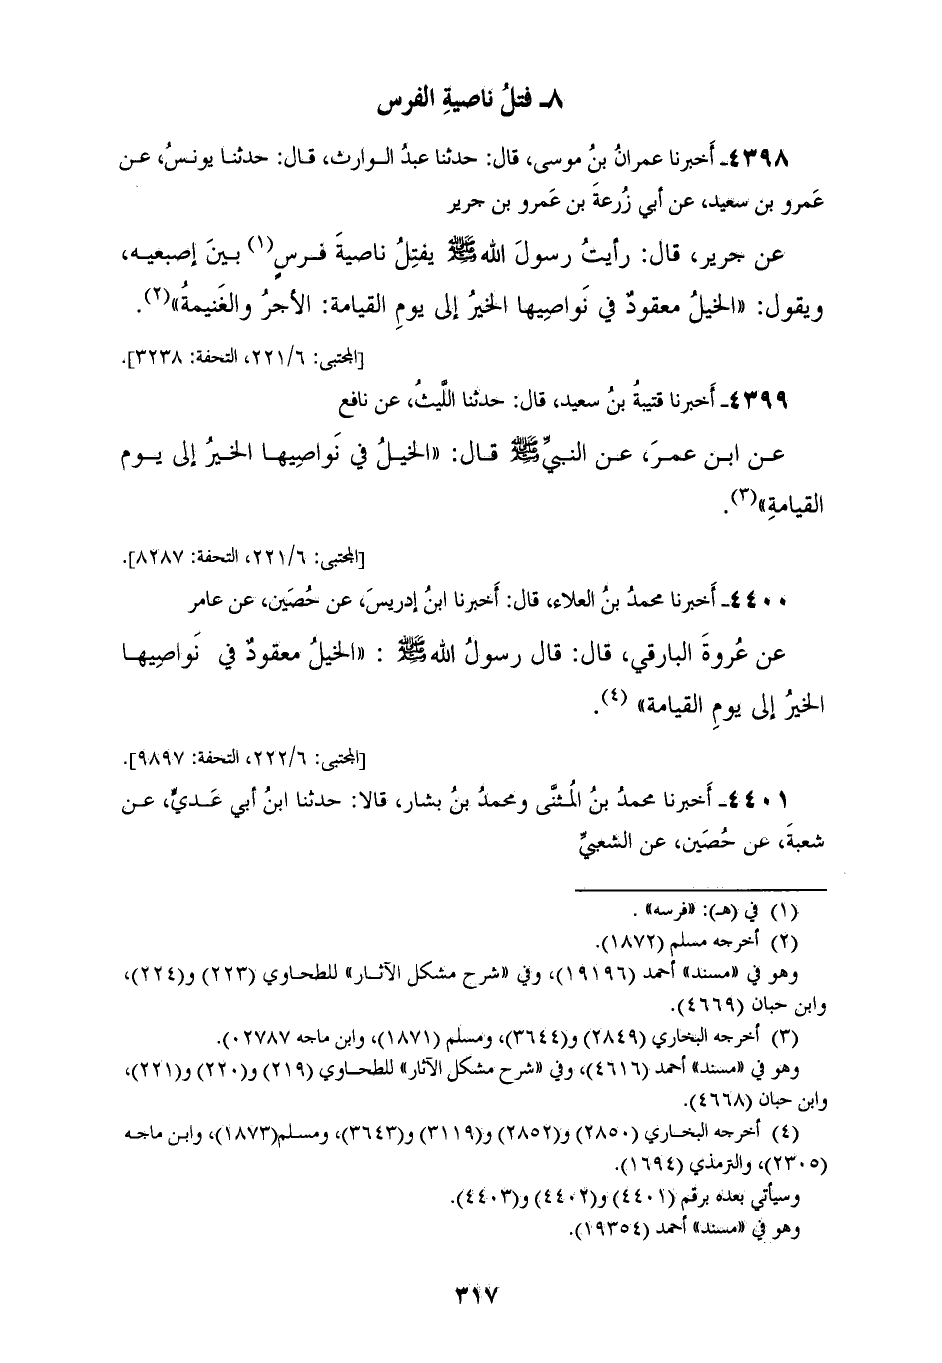 ٨ـ فتلُ ناصيةِ الفرس
٤٣٩٨ـ أَخبرنا عمرانُ بنُ موسى، قال: حدثنا عبدُ الوارث، قال: حدثنا يونسُ، عن
عَمرو بن سعيد، عن أبي زُرعةَ بن عَمرو بن جرير
عن جرير، قال: رأيتُ رسولَ اللهﷺ يفتِلُ ناصيةَ فرسٍ(١) بينَ إصبعيه،
ويقول: «الخيلُ معقودٌ في نَواصيها الخيرُ إلى يومِ القيامة: الأجرُ والغَنيمةُ»(٢).
[المجتبى: ٢٢١/٦، التحفة: ٣٢٣٨].
٤٣٩٩ـ أَخبرنا قتيبةُ بنُ سعيد، قال: حدثنا اللَّيثُ، عن نافع
عن ابن عمرَ، عن النبيِّﷺ قال: «الخيلُ في نَواصِيها الخيرُ إلى يوم
القيامةِ»(٣).
[المجتبى: ٢٢١/٦، التحفة: ٨٢٨٧].
٤٤٠٠ـ أَخبرنا محمدُ بنُ العلاء، قال: أَخبرنا ابنُ إدريسَ، عن حُصَين، عن عامر
عن عُروةَ البارقي، قال: قال رسولُ اللهﷺ : «الخيلُ معقودٌ في نَواصِيها
الخيرُ إلى يومِ القيامة» (٤).
[المجتبى: ٢٢٢/٦، التحفة: ٩٨٩٧].
٤٤٠١ـ أَخبرنا محمدُ بنُ المُثنَّى ومحمدُ بنُ بشار، قالا: حدثنا ابنُ أبي عَديٍّ، عن
شعبةَ، عن حُصَين، عن الشعبيِّ
(١) في (هـ): «فرسه» .
(٢) أخرجه مسلم (١٨٧٢).
وهو في «مسند» أحمد (١٩١٩٦)، وفي «شرح مشكل الآثار» للطحاوي (٢٢٣) و(٢٢٤)،
وابن حبان (٤٦٦٩).
(٣) أخرجه البخاري (٢٨٤٩) و(٣٦٤٤)، ومسلم (١٨٧١)، وابن ماجه ٠٢٧٨٧).
وهو في «مسند» أحمد (٤٦١٦)، وفي «شرح مشكل الآثار» للطحاوي (٢١٩) و(٢٢٠) و(٢٢١)،
وابن حبان (٤٦٦٨).
(٤) أخرجه البخاري (٢٨٥٠) و(٢٨٥٢) و(٣١١٩) و(٣٦٤٣)، ومسلم(١٨٧٣)، وابن ماجه
(٢٣٠٥)، والترمذي (١٦٩٤).
وسيأتي بعده برقم (٤٤٠١) و(٤٤٠٢) و(٤٤٠٣).
وهو في «مسند» أحمد (١٩٣٥٤).
٣١٧